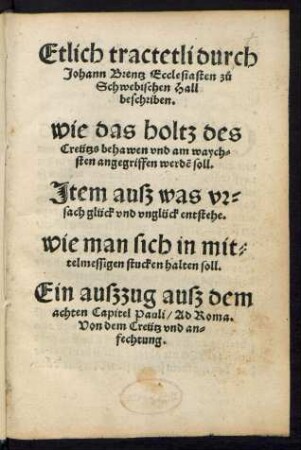 Etlich tractetli durch
Johann Brentz Ecclesiasten zů
Schwebischen Hall
beschriben.
wie das holtz des
Creützs behawen vnd am waych-
sten angegriffen werdē soll.
Item ausz was vr-
sach glück vnd vnglück entstehe.
wie man sich in mit-
telmessigen stucken halten soll.
Ein auszzug ausz dem
achten Capitel Pauli / Ad Roma.
Von dem Creütz vnd an-
fechtung.